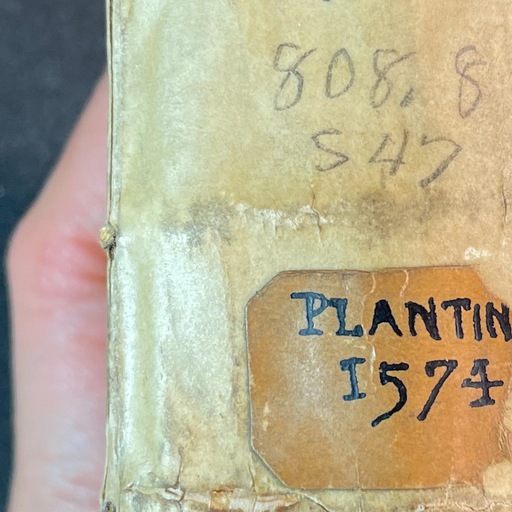 808.8
S47
PLANTIN
1574